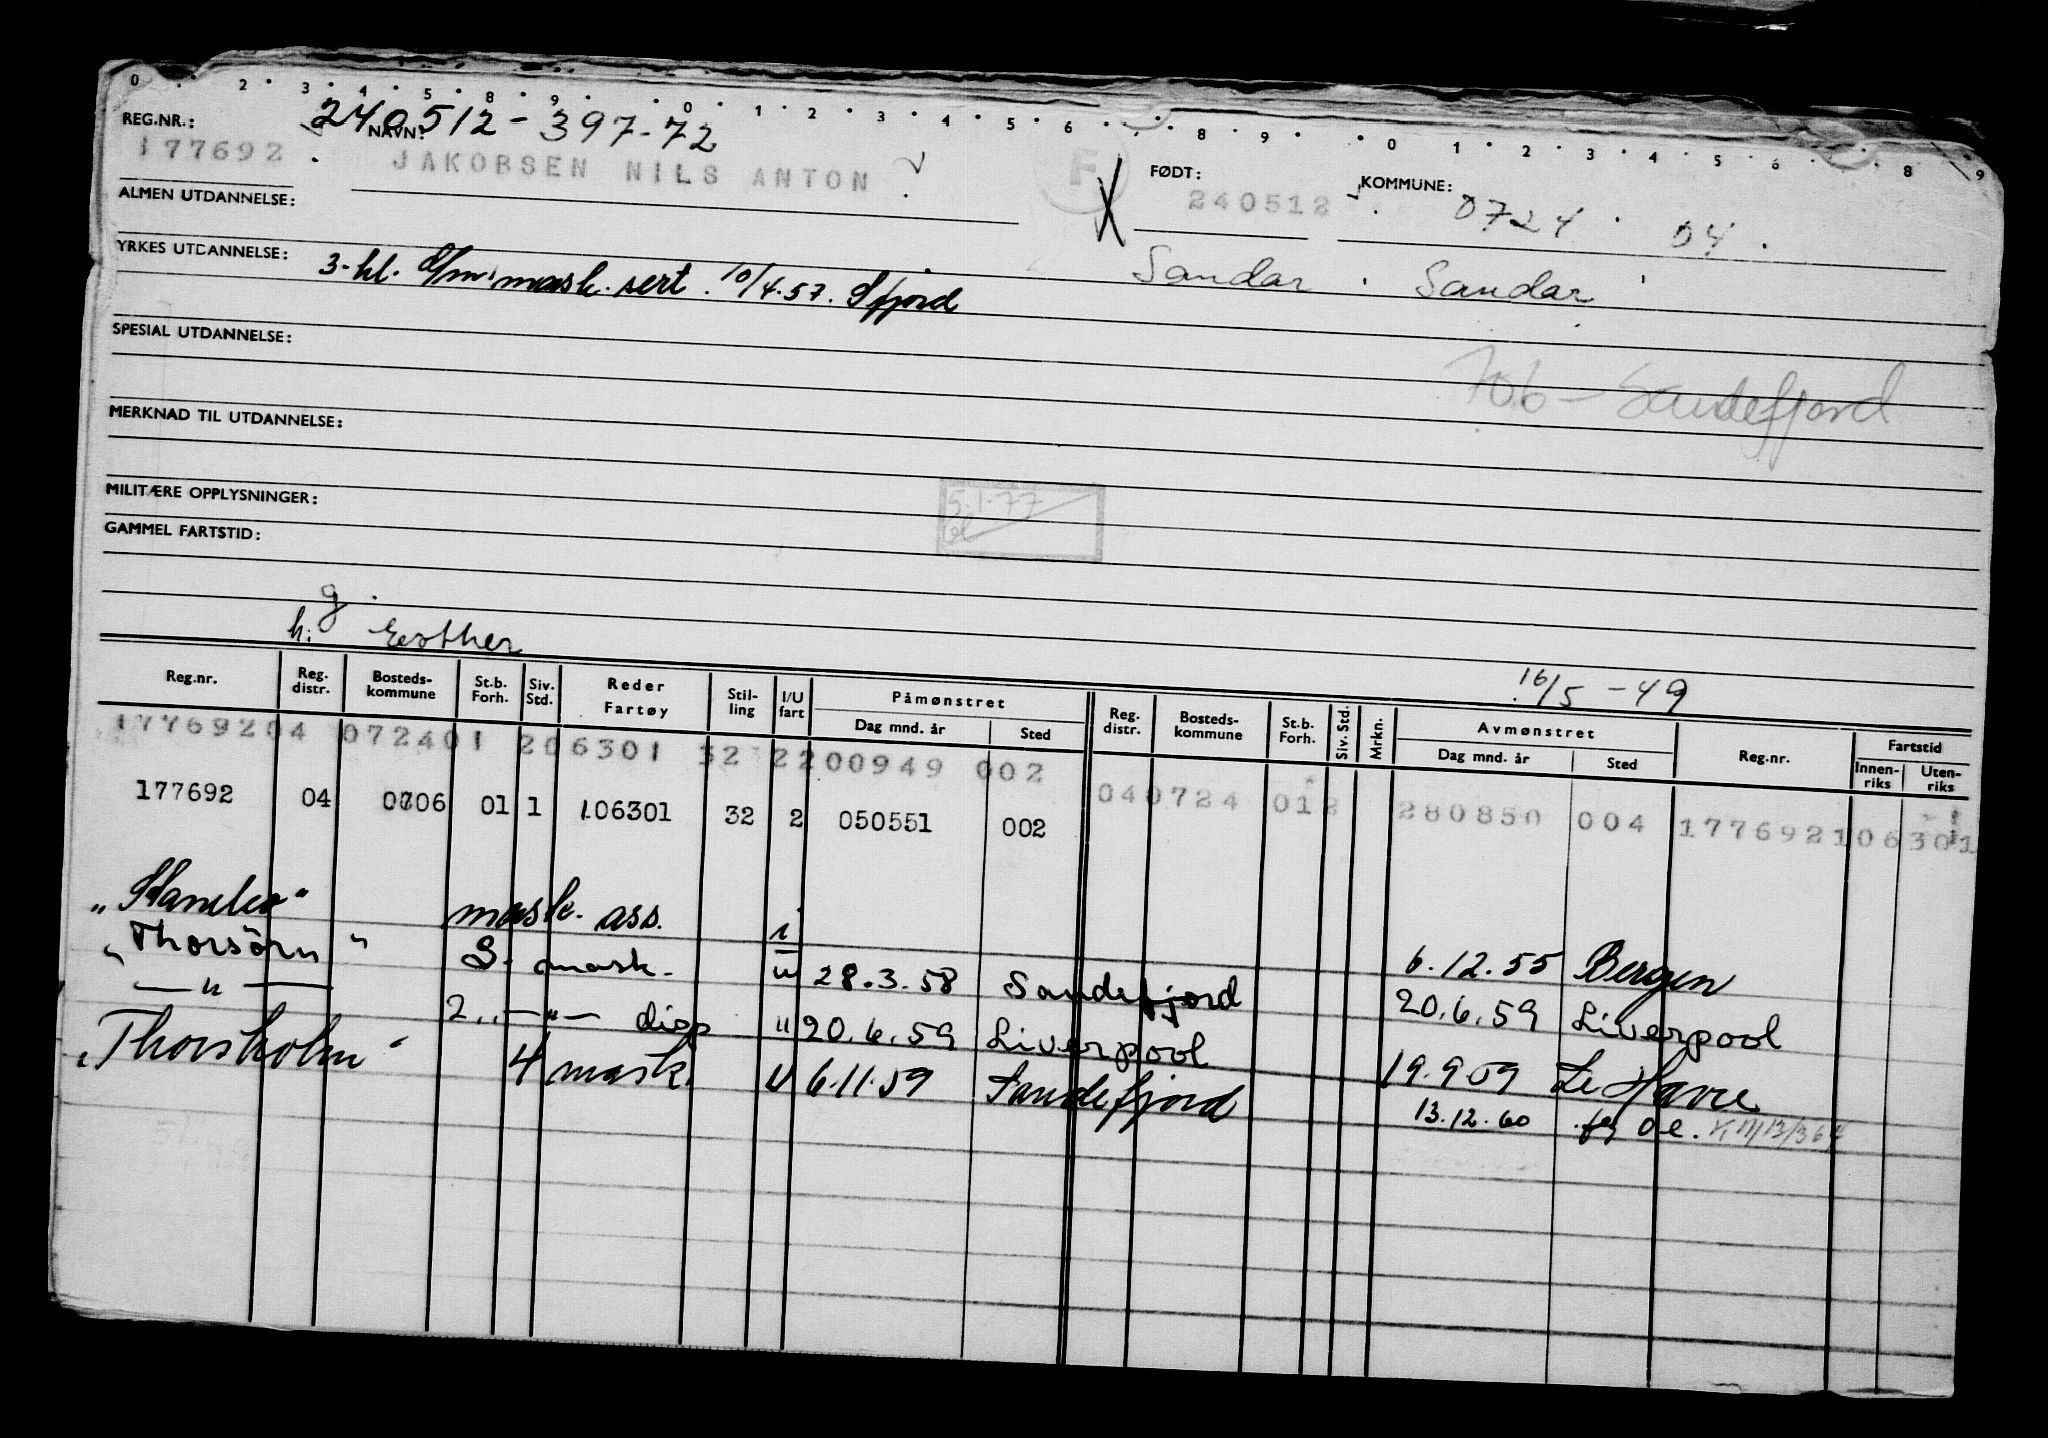 0 . 2 . 3 . 4 . 5 . 8 . 9 . . 0 . 1 . 2 . 3 . 4 . 5 . 6 . . 8 . 9 . . 0 . 1 . 2 . 3 . 4 . 5 . 6 . . 8 . 9
REG.NR.: 240512-397-72 NAVN:
177692 . JAKOBSEN NILS ANTON F FØDT: 240512 KOMMUNE: 0724 . 04 .
ALMEN UTDANNELSE:
Sandar . Sandar
YRKES UTDANNELSE: 3. kl. mask. sert. 10/4.57. Sfjord
SPESIAL UTDANNELSE:
706 - Sandefjord
MERKNAD TIL UTDANNELSE:
MILITÆRE OPPLYSNINGER:
5.1.77
GAMMEL FARTSTID:
g.
h: Esther
16/5 - 49
Reg.nr. Reg. distr. Bosteds- kommune St.b. Forh. Siv. Std. Reder Fartøy Stil- ling I/U fart Påmønstret Dag mnd. år Sted Reg. distr. Bosteds- kommune St.b. Forh. Siv. Std. Mrkn. Avmønstret Dag mnd. år Sted Reg.nr. Fartstid Innen- riks Uten- riks
17769204 072401 206301 32 2200949 002 040724 012 280850 004 177692106301
177692 04 0706 01 1 106301 32 2 050551 002
mask. ass. i 6.12.55 Bergen
"Thorsörn" 3. mask. u 28.3.58 Sandefjord 20.6.59 Liverpool
— " — 2. — " — disp " 20.6.59 Liverpool 19.9.59 Le Havre
"Thorsholm" 4 mask. U 6.11.59 Sandefjord 13.12.60